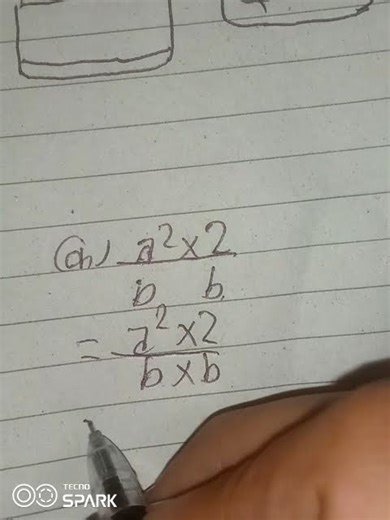 a²×2
b b
= a²×2
b×b
TECNO
SPARK